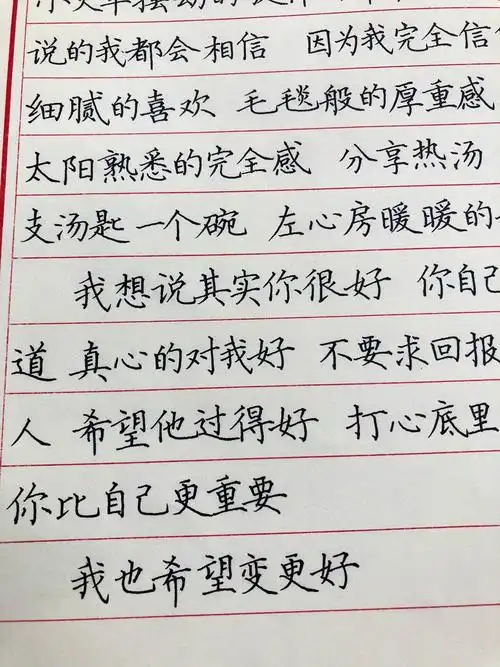 说的我都会相信 因为我完全信
细腻的喜欢 毛毯般的厚重感
太阳熟悉的完全感 分享热汤
支汤匙一个碗 左心房暖暖的
我想说其实你很好 你自己
道 真心的对我好 不要求回报
人 希望他过得好 打心底里
你比自己更重要
我也希望变更好